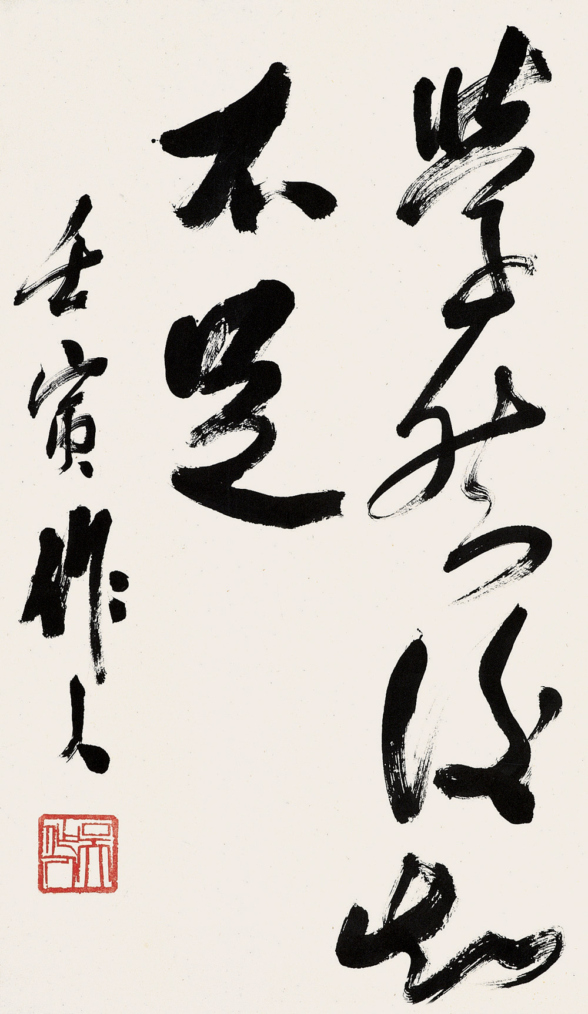 學然後知
不足
壬寅作人